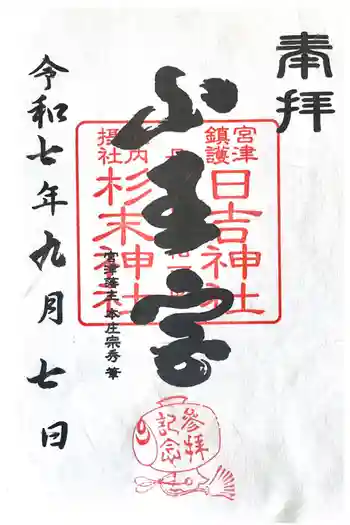 奉拝
山王宮
宮津
鎮護
日吉神社
内
摂社
杉末神社
宮津藩主 本庄宗秀 筆
令和七年九月七日
参拝
記念